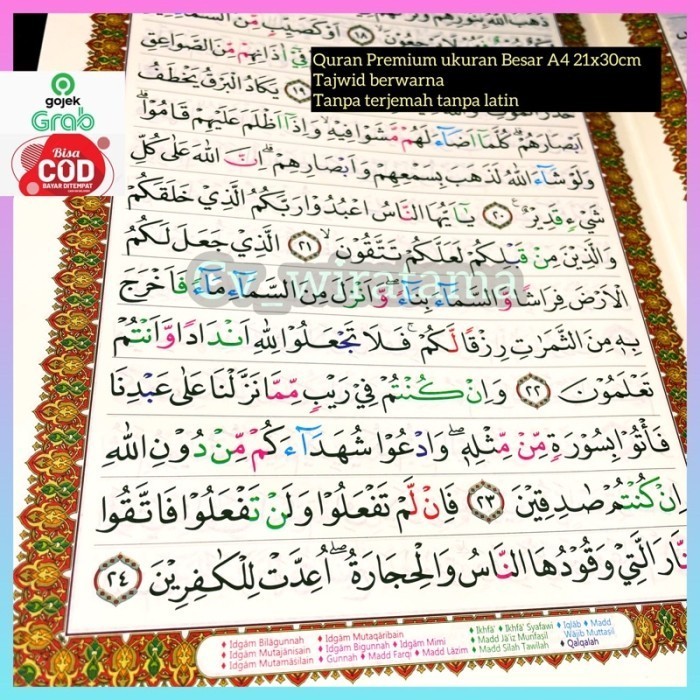 ذَهَبَ اللهُ بِنُوْرِهِمْ وَتَرَكَهُمْ
لَا يَرْجِعُوْنَ ١٨ اَوْ كَصَيِّبٍ مِّنَ السَّمَاۤءِ
فِيْٓ اٰذَانِهِمْ مِّنَ الصَّوَاعِقِ
١٩ يَكَادُ الْبَرْقُ يَخْطَفُ
Quran Premium ukuran Besar A4 21x30cm
Tajwid berwarna
Tanpa terjemah tanpa latin
gojek
Grab
Bisa
COD
BAYAR DITEMPAT
اَبْصَارَهُمْ ۗ كُلَّمَآ اَضَاۤءَ لَهُمْ مَّشَوْا فِيْهِ ۙ وَاِذَآ اَظْلَمَ عَلَيْهِمْ قَامُوْا ۗ
وَلَوْ شَاۤءَ اللهُ لَذَهَبَ بِسَمْعِهِمْ وَاَبْصَارِهِمْ ۗ اِنَّ اللهَ عَلٰى كُلِّ
شَيْءٍ قَدِيْرٌ ٢٠ يٰٓاَيُّهَا النَّاسُ اعْبُدُوْا رَبَّكُمُ الَّذِيْ خَلَقَكُمْ
وَالَّذِيْنَ مِنْ قَبْلِكُمْ لَعَلَّكُمْ تَتَّقُوْنَ ۙ ٢١ الَّذِيْ جَعَلَ لَكُمُ
Cv_wiratama
الْاَرْضَ فِرَاشًا وَّالسَّمَاۤءَ بِنَاۤءً ۖ وَّاَنْزَلَ مِنَ السَّمَاۤءِ مَاۤءً فَاَخْرَجَ
بِهٖ مِنَ الثَّمَرٰتِ رِزْقًا لَّكُمْ ۚ فَلَا تَجْعَلُوْا لِلّٰهِ اَنْدَادًا وَّاَنْتُمْ
تَعْلَمُوْنَ ٢٢ وَاِنْ كُنْتُمْ فِيْ رَيْبٍ مِّمَّا نَزَّلْنَا عَلٰى عَبْدِنَا
فَأْتُوْا بِسُوْرَةٍ مِّنْ مِّثْلِهٖ ۖ وَادْعُوْا شُهَدَاۤءَكُمْ مِّنْ دُوْنِ اللهِ
اِنْ كُنْتُمْ صٰدِقِيْنَ ٢٣ فَاِنْ لَّمْ تَفْعَلُوْا وَلَنْ تَفْعَلُوْا فَاتَّقُوا
النَّارَ الَّتِيْ وَقُوْدُهَا النَّاسُ وَالْحِجَارَةُ ۖ اُعِدَّتْ لِلْكٰفِرِيْنَ ٢٤
Idgām Bilāgunnah Idgām Mutaqāribain Ikhfā' Ikhfā' Syafawi Iqlāb Madd
Idgām Mutajānisain Idgām Bigunnah Idgām Mimi Madd Jā'iz Munfaṣil Wājib Muttaṣil
Idgām Mutamāṡilain Gunnah Madd Farqi Madd Lāzim Madd Ṣilah Ṭawīlah Qalqalah